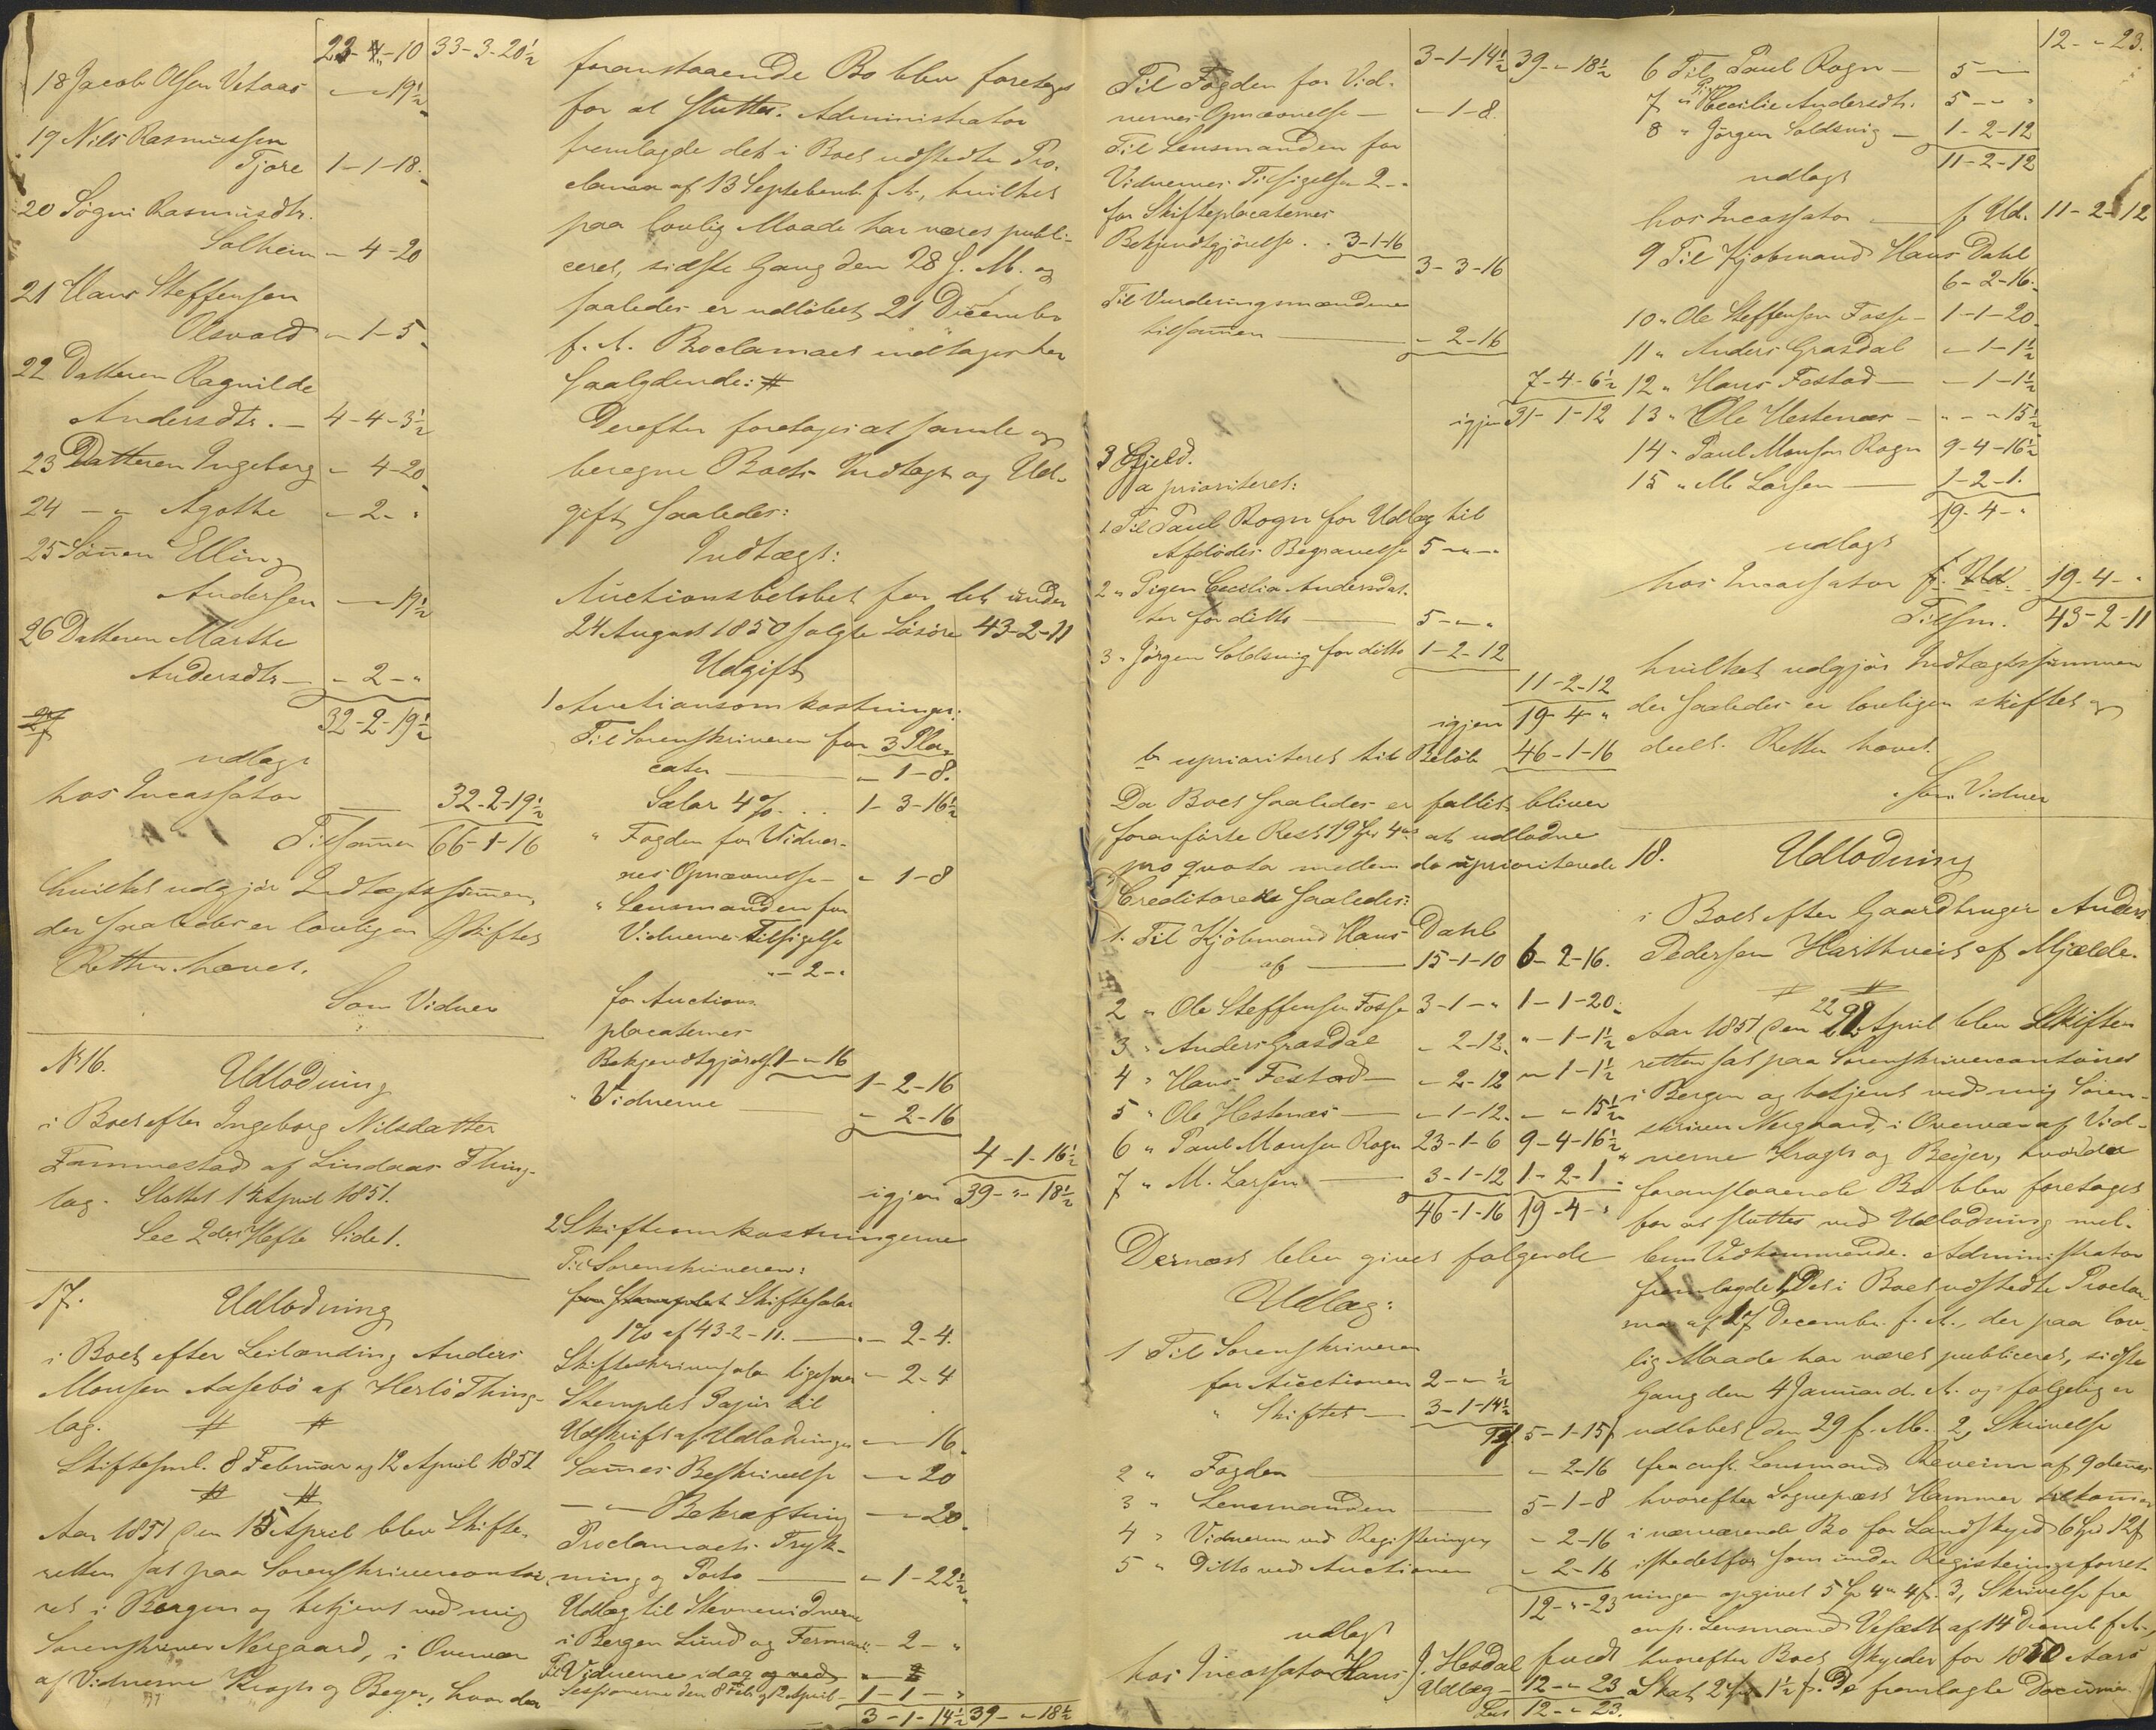 23-4-10 33-3-20½
18 Jacob Olsen Vetaas " - " 19½
19 Nils Rasmussen
Tjore 1-1-18.
20 Sögni Rasmusdtr.
Solheim " - 4-20
21 Hans Steffensen
Olsvold " - 1-5
22 Datteren Ragnilde
Andersdtr. - 4-4-3½
23 Datteren Ingeborg " 4-20
24 - " - Agathe " - 2 - "
25 Sönnen Elling
Andersen " - " 19½
26 Datteren Marthe
Andersdtr - " - 2 - "
32-2-19½
udlagt
hos Incassator 32-2-19½
Tilsammen 66-1-16
hvilket udgjör Indtægtssummen,
der saaledes er lovligen skiftet
Retten hævet.
Som Vidner
No 16.
Udlodning
i Boet efter Ingeborg Nilsdatter
Fammestad af Lindaas Thing-
lag. Sluttet 14 April 1851.
See 2det Hefte Side 1.
17.
Udlodning
i Boet efter Leilænding Anders
Monsen Aasebö af Herlö Thing-
lag.
Skiftesml. 8 Februar og 12 April 1851
Aar 1851 den 15 April blev Skifte-
retten sat paa Sorenskrivercontoi-
ret i Bergen og betjent ved mig
Sorenskriver Nergaard, i Overvær
af Vidnerne Kragh og Beyer, hvor da
foranstaaende Bo blev foretaget
for at sluttes. Administrator
fremlagde det i Boet udstedte Pro-
clama af 13 September f. A., hvilket
paa lovlig Maade har været publi-
ceret, sidste Gang den 28 s. M. og
saaledes er udlöbet 21 December
f. A. Proclamaet indtages her
saalydende: #
Derefter foretages at samle og
beregne Boets Indtægt og Ud-
gift saaledes:
Indtægt:
Auctionsbelöbet for det under
24 August 1850 solgte Lösöre 43-2-11
Udgift
1 Auctionsomkostninger:
Til Sorenskriveren for 3 Pla-
cater " - 1-8.
Salær 4 % . . . 1-3-16½
" Fogden for Vidner-
nes Opnævnelse - " 1-8
" Lensmanden for
Vidnernes Tilsigelse
" - 2 - "
for Auctions
placaternes
Bekjendtgjörelse 1 - " 16
1-2-16
" Vidnerne " 2-16
4-1-16½
igjen 39 - " - 18½
2 Skifteomkostningerne
Til Sorenskriveren:
for Stemplet Skiftesalær
1% af 43-2-11. " - 2-4.
Skifteskriversalær ligesaa " 2-4
Stemplet Papir til
Udskrift af Udlodningen " - " 16.
Sammes Beskrivelse " - " 20
- " - Bekræftning " - " 20
Proclamaets Tryk-
ning og Porto " - 1-22½
Udlæg til Stevnevidnerne
i Bergen Lund og Ferman " - 2 - "
Til Vidnerne idag og ved
Sessionerne den 8 Feb. og 12 April - 1-1 - "
3-1-14½ 39 - " 18½
3-1-14½ 39 - " 18½
Til Fogden for Vid-
nernes Opnævnelse - " - 1-8.
Til Lensmanden for
Vidnernes Tilsigelse 2 - "
for Skifteplacaternes
Bekjendtgjörelse . . 3-1-16
3-3-16
Til Vurderingsmændene
tilsammen " 2-16
7-4-6½
igjen 31-1-12
3 Gjeld.
a prioriteret:
1 Til Paul Rogn for Udlæg til
Afdödes Begravelse 5 - " - "
2 " Pigen Cecilia Andersdat-
ter for ditto 5 - " - "
3 " Jörgen Soldsvig for ditto 1-2-12
11-2-12
igjen 19-4 "
b uprioriteret til Belöb 46-1-16
Da Boet saaledes er fallit, bliver
foranförte Rest 19 Spd 4 ort at udlodne
pro quota mellem de uprioriterede
Creditorer saaledes:
1. Til Kjöbmand Hans Dahl
af 15-1-10 6-2-16.
2 " Ole Steffensen Fosse 3-1 - " 1-1-20
3 " Anders Grasdal " 2-12 " - 1-1½
4 " Hans Festad " 2-12 " 1-1½
5 " Ole Hestenæs " 1-12 " - " 15½
6 " Paul Monsen Rogn 23-1-6 9-4-16½
7 " M. Larsen 3-1-12 1-2-1
46-1-16 19-4 - "
Dernæst blev givet fölgende
Udlæg:
1 Til Sorenskriveren
for Auctionen 2 - " ½
" Skiftet 3-1-14½
5-1-15
2 " Fogden " 2-16
3 " Lensmanden 5-1-8
4 " Vidnerne ved Registeringen " 2-16
5 " Ditto ved Auctionen " 2-16
12 - " 23
udlagt
hos Incassator Hans J. Hesdal
Udlæg 12 - " 23
Lat. 12 - " 23.
12 - " 23.
6 Til Paul Rogn 5 - "
7 " Pigen Cecilie Andersdtr. 5 - " "
8 " Jörgen Soldsvig 1-2-12
11-2-12
udlagt
hos Incassator f. Ud. 11-2-12
9 Til Kjöbmand Hans Dahl
6-2-16.
10 " Ole Steffensen Fosse 1-1-20
11 " Anders Grasdal " 1-1½
12 " Hans Festad " 1-1½
13 " Ole Hestenæs " - " 15½
14 " Paul Monsen Rogn 9-4-16½
15 " M. Larsen 1-2-1.
19-4 - "
udlagt
hos Incassator f. Ud. 19-4 - "
Tilsm. 43-2-11
hvilket udgjör Indtægtssummen
der saaledes er lovligen skiftet og
deelt. Retten hævet.
Som Vidner
18.
Udlodning
i Boet efter Gaardbruger Anders
Pedersen Harthveit af Mjælde.
Aar 1851 den 22 April blev Skifte
retten sat paa Sorenskrivercontoiret
i Bergen og betjent ved mig Soren-
skriver Nergaard, i Overvær af Vid-
nerne Kragh og Beyer, hvor da
foranstaaende Bo blev foretaget
for at sluttes ved Udlodning mel-
lem Vedkommende. Administrator
fremlagde 1, Det i Boet udstedte Procla-
ma af 17 December f. A., der paa lov-
lig Maade har været publiceret, sidste
Gang den 4 Januar d. A. og fölgelig er
udlöbet den 29 f. M. 2, Skrivelse
fra const. Lensmand Reveim af 9 dennes
hvorefter Sognepræst Hammer tilkommer
i nærværende Bo for Landskyld 6 Spd 12 s
istedetfor som under Registeringsforret-
ningen opgivet 5 Spd 4 ort 4 s. 3, Skrivelse fra
const. Lensmand af 14 Decmb f. A.,
hvorefter Boet skylder for 1850 Aars
Skat 2 1½ s. De fremlagte Documen-